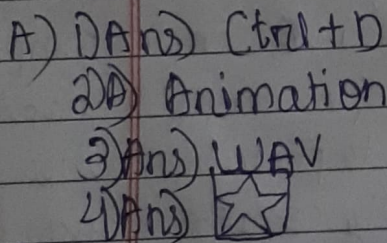 A) 1) Ans) Ctrl + D
2) A) Animation
3) Ans) .WAV
4) Ans)